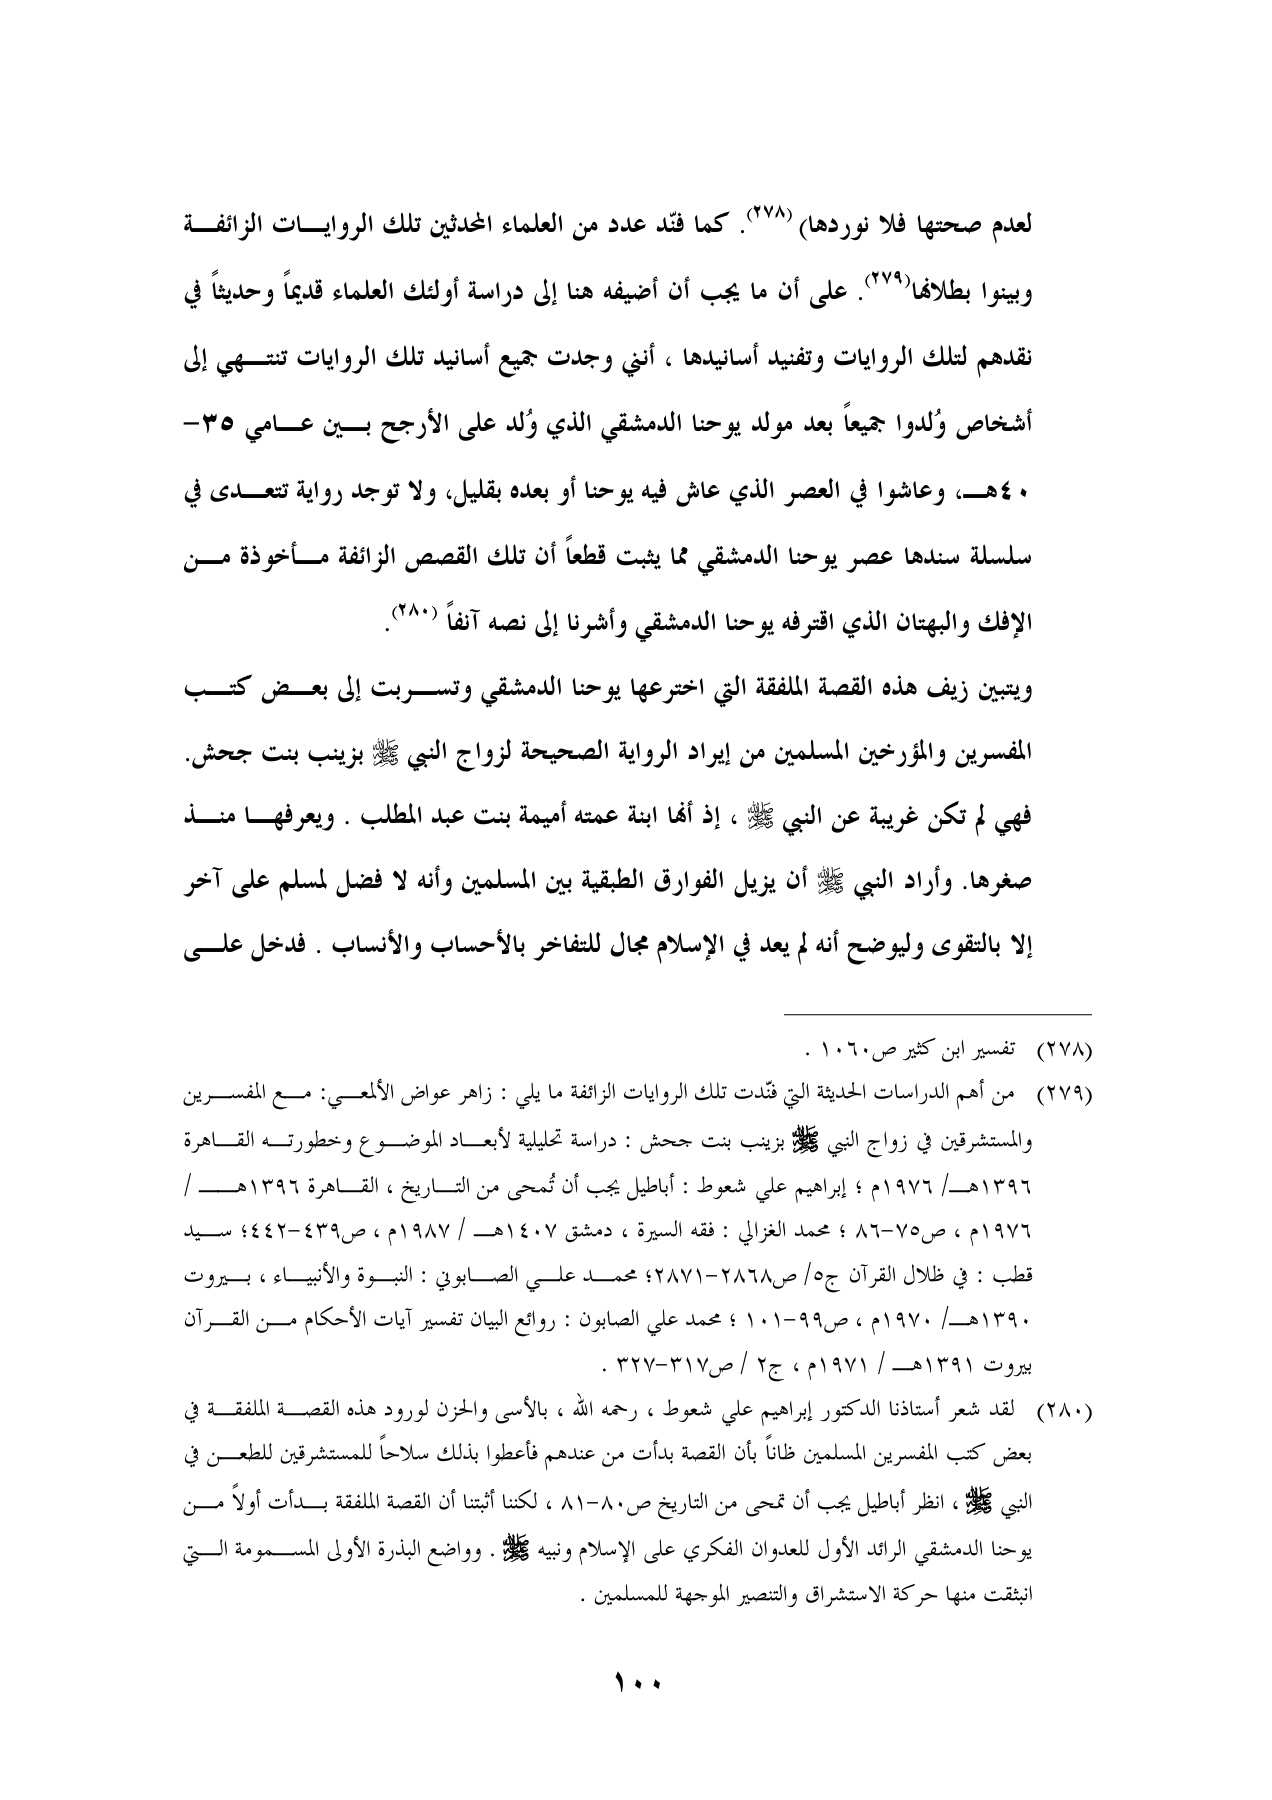 لعدم صحتها فلا نوردها) (٢٧٨). كما فنّد عدد من العلماء المحدثين تلك الروايـــات الزائفـــة
وبينوا بطلانها(٢٧٩). على أن ما يجب أن أضيفه هنا إلى دراسة أولئك العلماء قديماً وحديثاً في
نقدهم لتلك الروايات وتفنيد أسانيدها ، أنني وجدت جميع أسانيد تلك الروايات تنتـــهي إلى
أشخاص وُلدوا جميعاً بعد مولد يوحنا الدمشقي الذي وُلد على الأرجح بـــين عـــامي ٣٥-
٤٠هـــ، وعاشوا في العصر الذي عاش فيه يوحنا أو بعده بقليل، ولا توجد رواية تتعـــدى في
سلسلة سندها عصر يوحنا الدمشقي مما يثبت قطعاً أن تلك القصص الزائفة مـــأخوذة مـــن
الإفك والبهتان الذي اقترفه يوحنا الدمشقي وأشرنا إلى نصه آنفاً (٢٨٠).
ويتبين زيف هذه القصة الملفقة التي اخترعها يوحنا الدمشقي وتســـربت إلى بعـــض كتـــب
المفسرين والمؤرخين المسلمين من إيراد الرواية الصحيحة لزواج النبي ﷺ بزينب بنت جحش.
فهي لم تكن غريبة عن النبي ﷺ ، إذ أنها ابنة عمته أميمة بنت عبد المطلب . ويعرفهـــا منـــذ
صغرها. وأراد النبي ﷺ أن يزيل الفوارق الطبقية بين المسلمين وأنه لا فضل لمسلم على آخر
إلا بالتقوى وليوضح أنه لم يعد في الإسلام مجال للتفاخر بالأحساب والأنساب . فدخل علـــى
(٢٧٨) تفسير ابن كثير ص١٠٦٠ .
(٢٧٩) من أهم الدراسات الحديثة التي فنّدت تلك الروايات الزائفة ما يلي : زاهر عواض الألمعـــي: مـــع المفســـرين
والمستشرقين في زواج النبي ﷺ بزينب بنت جحش : دراسة تحليلية لأبعـــاد الموضـــوع وخطورتـــه القـــاهرة
١٣٩٦هـــ/ ١٩٧٦م ؛ إبراهيم علي شعوط : أباطيل يجب أن تُمحى من التـــاريخ ، القـــاهرة ١٣٩٦هـــ /
١٩٧٦م ، ص٧٥-٨٦ ؛ محمد الغزالي : فقه السيرة ، دمشق ١٤٠٧هـــ / ١٩٨٧م ، ص٤٣٩-٤٤٢؛ ســـيد
قطب : في ظلال القرآن ج٥/ ص٢٨٦٨-٢٨٧١؛ محمـــد علـــي الصـــابوني : النبـــوة والأنبيـــاء ، بـــيروت
١٣٩٠هـــ/ ١٩٧٠م ، ص٩٩-١٠١ ؛ محمد علي الصابون : روائع البيان تفسير آيات الأحكام مـــن القـــرآن
بيروت ١٣٩١هـــ / ١٩٧١م ، ج٢ / ص٣١٧-٣٢٧ .
(٢٨٠) لقد شعر أستاذنا الدكتور إبراهيم علي شعوط ، رحمه الله ، بالأسى والحزن لورود هذه القصـــة الملفقـــة في
بعض كتب المفسرين المسلمين ظاناً بأن القصة بدأت من عندهم فأعطوا بذلك سلاحاً للمستشرقين للطعـــن في
النبي ﷺ ، انظر أباطيل يجب أن تمحى من التاريخ ص٨٠-٨١ ، لكننا أثبتنا أن القصة الملفقة بـــدأت أولاً مـــن
يوحنا الدمشقي الرائد الأول للعدوان الفكري على الإسلام ونبيه ﷺ . وواضع البذرة الأولى المســـمومة الـــتي
انبثقت منها حركة الاستشراق والتنصير الموجهة للمسلمين .
١٠٠